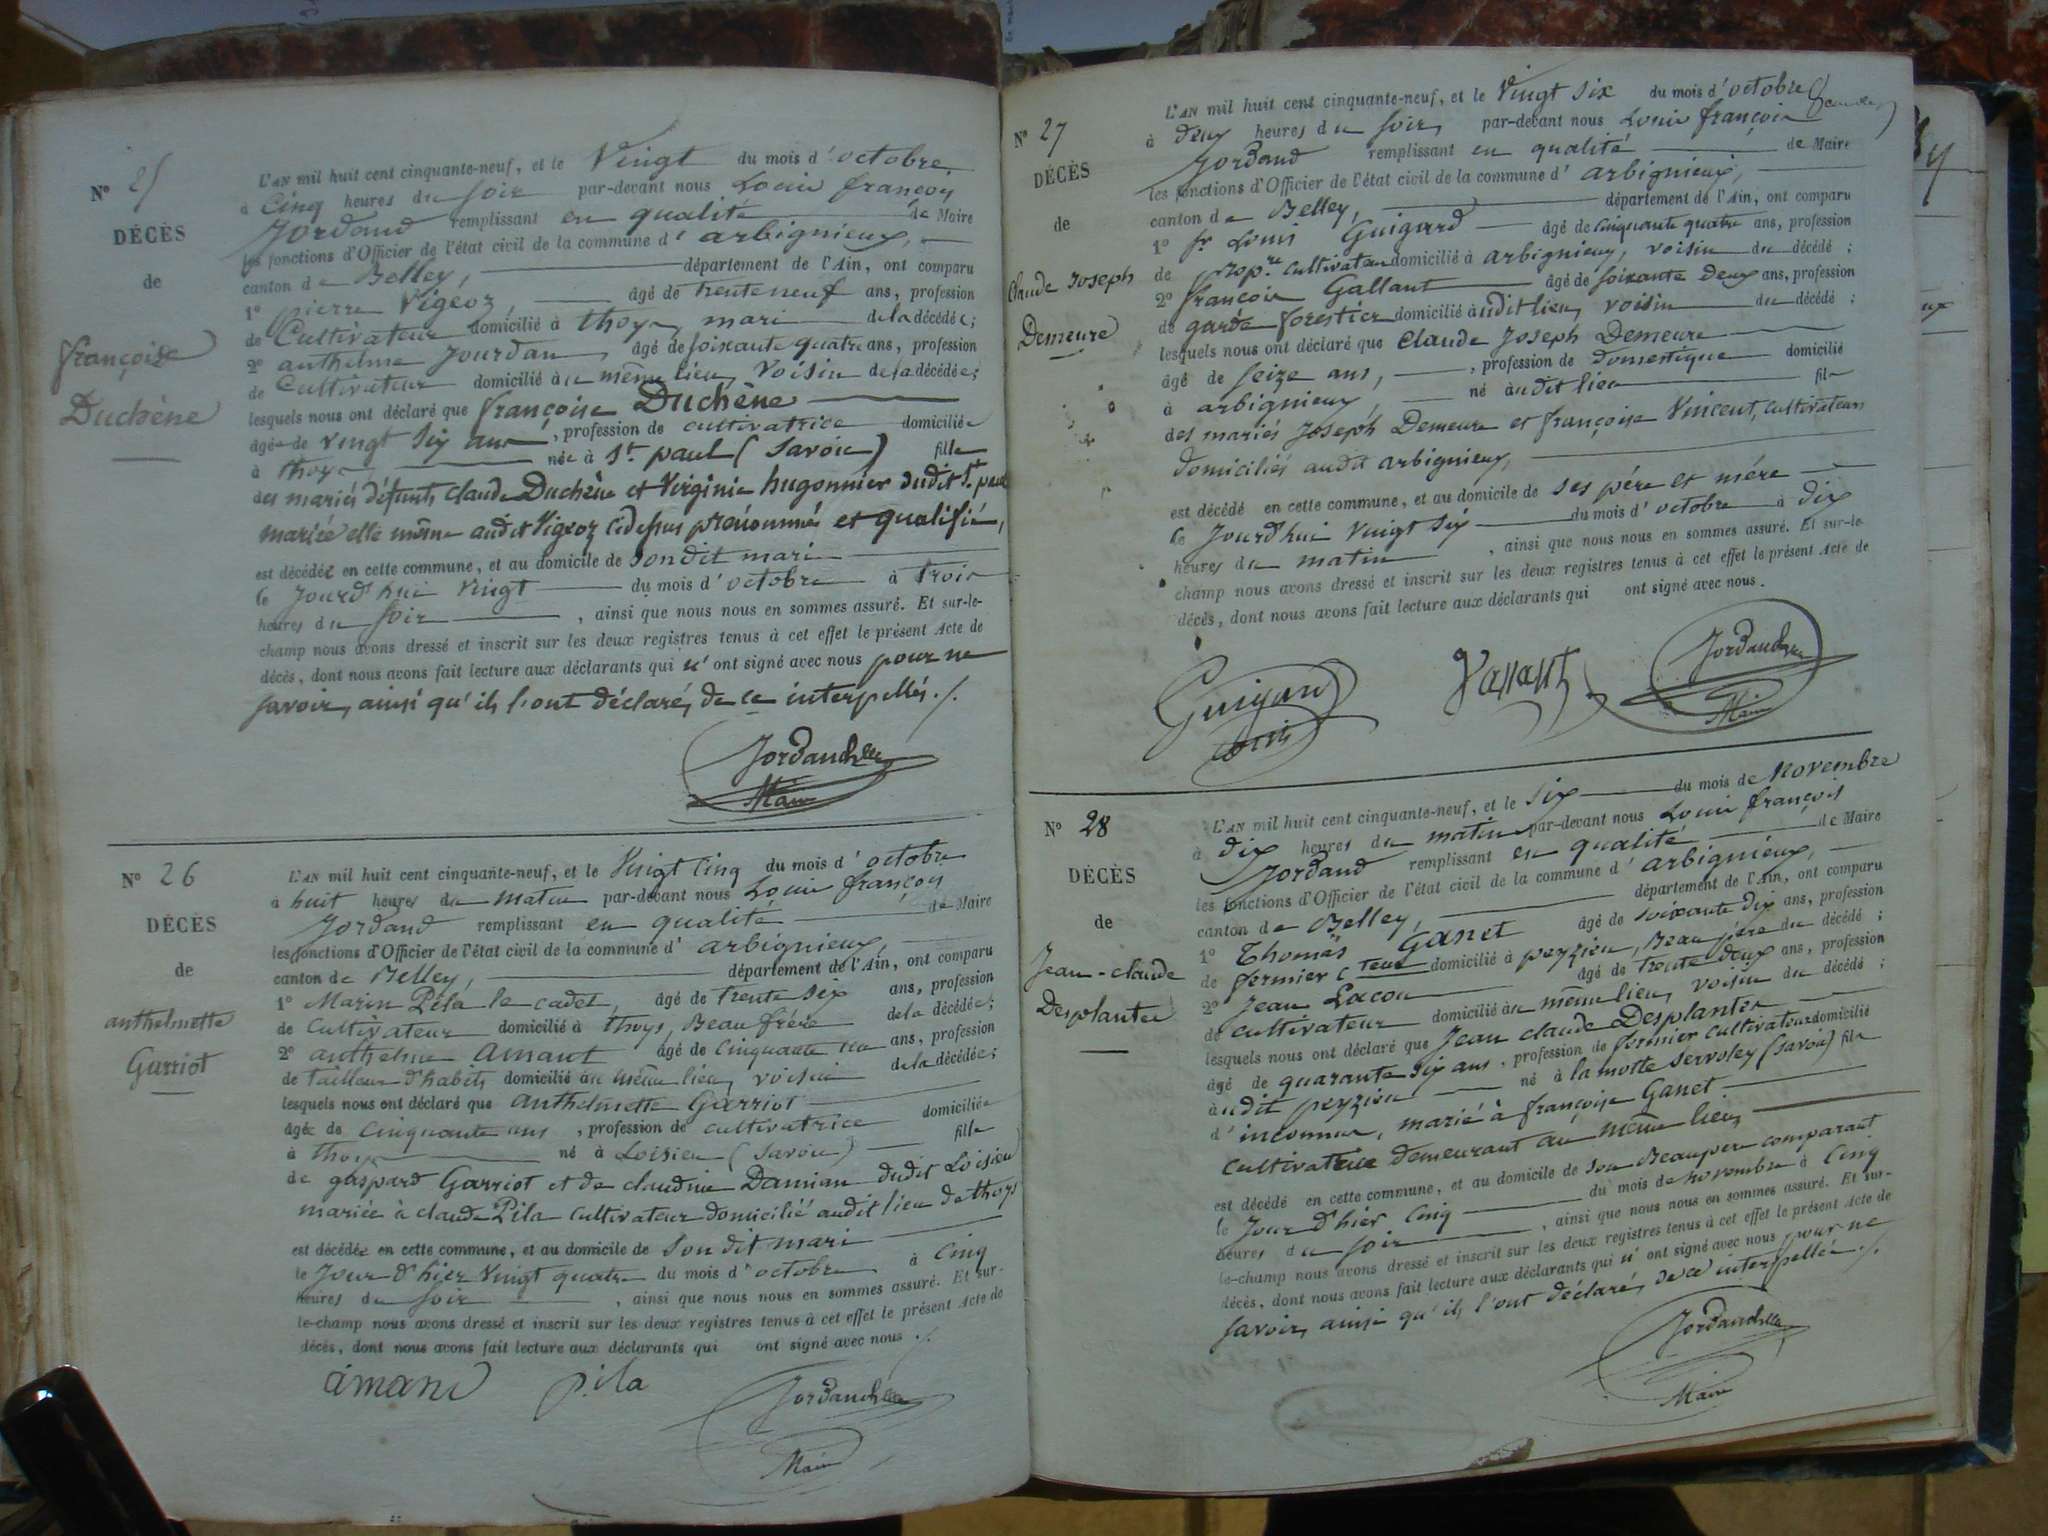 N° 25
DÉCÈS
de
françoise
Duchène
L'AN mil huit cent cinquante-neuf, et le Vingt du mois d'octobre
à Cinq heures du soir par-devant nous Louis françois
Jordand remplissant en qualité de Maire
les fonctions d'Officier de l'état civil de la commune d'arbignieux,
canton de Belley, département de l'Ain, ont comparu
1° pierre Vigeoz, âgé de trente neuf ans, profession
de Cultivateur domicilié à thoys, mari de la décédée;
2° anthelme Jourdan, âgé de soixante quatre ans, profession
de Cultivateur domicilié au même lieu, Voisin de la décédée;
lesquels nous ont déclaré que françoise Duchène
âgée de vingt six ans, profession de cultivatrice domiciliée
à thoys née à St paul (Savoie) fille
des mariés défunts claude Duchène et Virginie hugonnier dudit St paul
mariée elle même audit Vigeoz cidessus prénommé et qualifié,
est décédée en cette commune, et au domicile de son dit mari
le Jourd'hui Vingt du mois d'octobre à trois
heures du soir, ainsi que nous nous en sommes assuré. Et sur-le-
champ nous avons dressé et inscrit sur les deux registres tenus à cet effet le présent Acte de
décès, dont nous avons fait lecture aux déclarants qui n'ont signé avec nous pour ne
savoir, ainsi qu'ils l'ont déclaré, de ce interpellés ./.
Jordand
Maire
N° 26
DÉCÈS
de
anthelmette
Garriot
L'AN mil huit cent cinquante-neuf, et le Vingt Cinq du mois d'octobre
à huit heures du matin par-devant nous Louis françois
Jordand remplissant en qualité de Maire
les fonctions d'Officier de l'état civil de la commune d'arbignieux,
canton de Belley, département de l'Ain, ont comparu
1° Marin Pila le cadet, âgé de trente six ans, profession
de Cultivateur domicilié à thoys, Beau frère de la décédée;
2° anthelme amant âgé de Cinquante un ans, profession
de tailleur d'habits domicilié au même lieu, voisin de la décédée;
lesquels nous ont déclaré que anthelmette Garriot
âgée de cinquante ans, profession de cultivatrice domiciliée
à thoys né à Loisieu (Savoie) fille
de gaspard Garriot et de claudine Damian dudit Loisieu
mariée à claude Pila cultivateur domicilié audit lieu de thoys
est décédée en cette commune, et au domicile de son dit mari
le Jour d'hier Vingt quatre du mois d'octobre à Cinq
heures du soir, ainsi que nous nous en sommes assuré. Et sur-
le-champ nous avons dressé et inscrit sur les deux registres tenus à cet effet le présent Acte de
décès, dont nous avons fait lecture aux déclarants qui ont signé avec nous ./.
amand pila Jordand
Maire
N° 27
DÉCÈS
de
Claude Joseph
Demeure
L'AN mil huit cent cinquante-neuf, et le Vingt six du mois d'octobre
à deux heures du soir, par-devant nous Louis françois
Jordand remplissant en qualité de Maire
les fonctions d'Officier de l'état civil de la commune d'arbignieux,
canton de Belley, département de l'Ain, ont comparu
1° fr Louis Guigard âgé de cinquante quatre ans, profession
de propre cultivateur domicilié à arbignieux, voisin du décédé;
2° françois Gallant âgé de soixante deux ans, profession
de garde forestier domicilié audit lieu, voisin du décédé;
lesquels nous ont déclaré que Claude Joseph Demeure
âgé de seize ans, profession de domestique domicilié
à arbignieux, né audit lieu fils
des mariés Joseph Demeure et françoise Vincent, cultivateurs
domiciliés audit arbignieux,
est décédé en cette commune, et au domicile de ses père et mère
le Jourd'hui vingt six du mois d'octobre à dix
heures du matin, ainsi que nous nous en sommes assuré. Et sur-le-
champ nous avons dressé et inscrit sur les deux registres tenus à cet effet le présent Acte de
décès, dont nous avons fait lecture aux déclarants qui ont signé avec nous.
Guigard Jordand
Louis Maire
N° 28
DÉCÈS
de
Jean-claude
Desplantes
L'AN mil huit cent cinquante-neuf, et le six du mois de Novembre
à dix heures du matin par-devant nous Louis françois
Jordand remplissant en qualité de Maire
les fonctions d'Officier de l'état civil de la commune d'arbignieux,
canton de Belley, département de l'Ain, ont comparu
1° Thomas Ganet âgé de soixante dix ans, profession
de fermier cteur domicilié à peyzieu, Beau père du décédé;
2° Jean Lacou âgé de trente deux ans, profession
de cultivateur domicilié au même lieu, voisin du décédé;
lesquels nous ont déclaré que Jean claude Desplantes
âgé de quarante six ans, profession de fermier cultivateur domicilié
audit peyzieu né à la motte servolex (Savoie) fils
d'inconnus, marié à françoise Ganet
cultivatrice demeurant au même lieu,
est décédé en cette commune, et au domicile de son Beau pere comparant
le Jour d'hier Cinq du mois de novembre à Cinq
heures du soir, ainsi que nous nous en sommes assuré. Et sur-
le-champ nous avons dressé et inscrit sur les deux registres tenus à cet effet le présent Acte de
décès, dont nous avons fait lecture aux déclarants qui n'ont signé avec nous pour ne
savoir, ainsi qu'ils l'ont déclaré, de ce interpellés ./.
Jordand
Maire